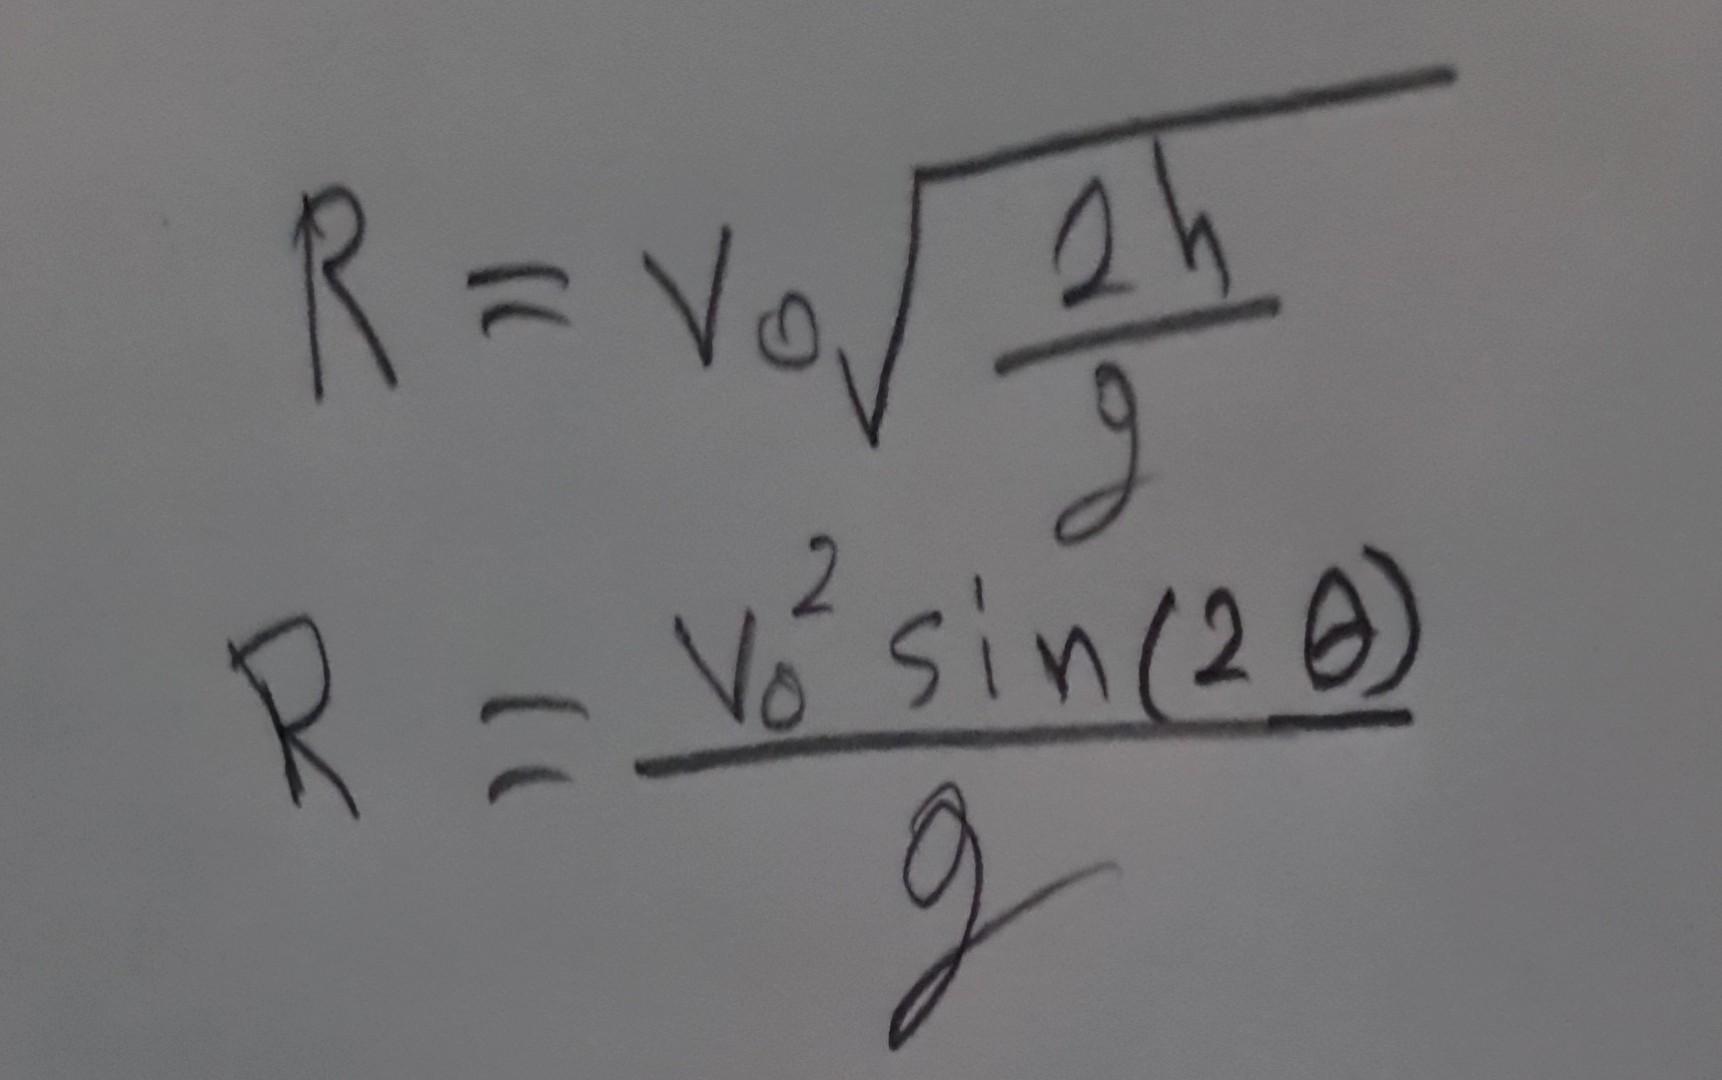 R = v₀√(2h/g)
R = v₀² sin(2θ)/g